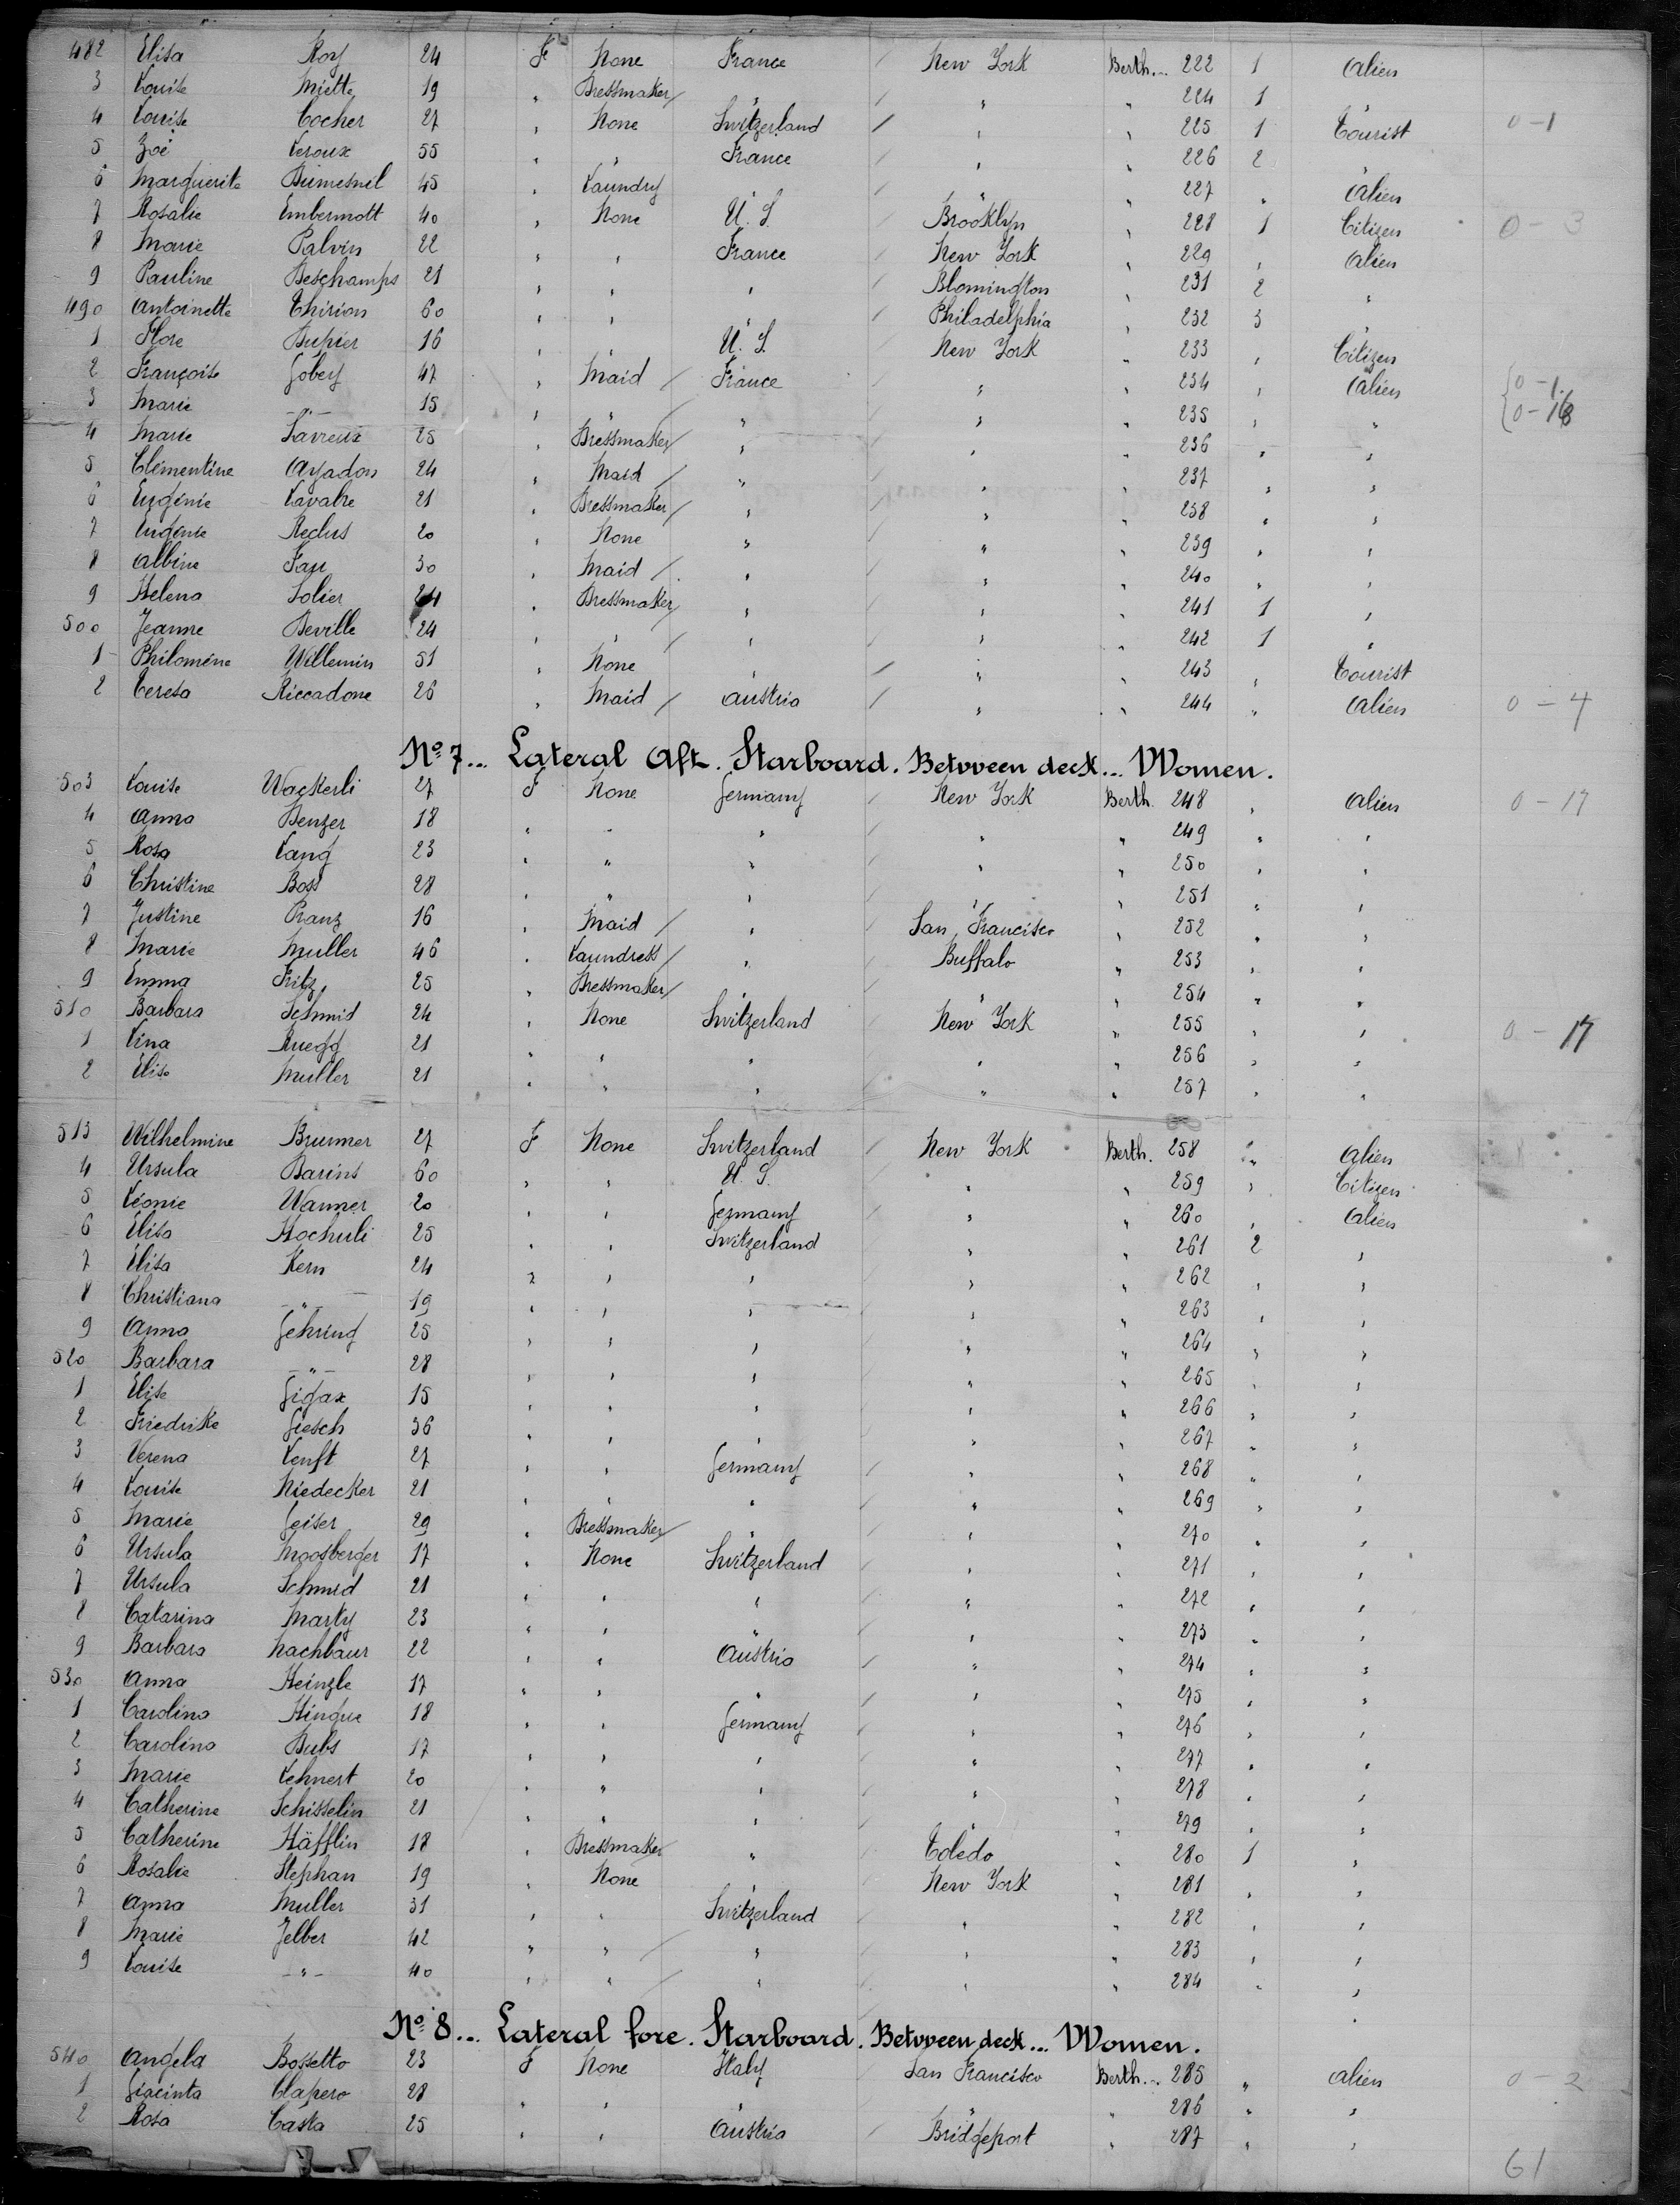 482 Elisa Roy 24 F None France New York Berth... 222 1 Alien
3 Louise Miette 19 " Dressmaker " " " 224 1
4 Louise Cocher 27 " None Switzerland " " 225 1 Tourist 0-1
5 Zoé Leroux 55 " " France " " 226 2 "
6 Marguerite Dumesnil 45 " Laundry " " 227 " Alien
7 Rosalie Embermott 40 " None U. S. Brooklyn " 228 1 Citizen 0-3
8 Marie Palvin 22 " " France New York " 229 " Alien
9 Pauline Deschamps 21 " " " Blomington " 231 2 "
490 Antoinette Thirion 60 " " Philadelphia " 232 3
1 Flore Dupier 16 " " U. S. New York " 233 " Citizen
2 Françoise Gobey 47 " Maid France " " 234 " Alien 0-1
3 Marie -"- 15 " " " " " 235 " "
4 Marie 25 " Dressmaker " " " 236 " "
5 Clémentine Ayadon 24 " Maid " " " 237 " "
6 Eugénie 21 " Dressmaker " " " 238 " "
7 Eugénie Reclus 20 " None " " " 239 " "
8 Albine Fau 30 " Maid " " " 240 " "
9 Helena Solier 24 " Dressmaker " " " 241 1 "
500 Jeanne Deville 24 " " " " " 242 1 "
1 Philomène Willemin 51 " None " " " 243 " Tourist
2 Teresa Riccadone 26 " Maid Austria " " 244 " Alien 0-4
No 7... Lateral Aft. Starboard. Between deck... Women.
503 Louise Wackerli 27 F None Germany New York Berth. 248 " Alien 0-17
4 Anna Benzer 18 " " " " " 249 " "
5 Rosa Lang 23 " " " " " 250 " "
6 Christine Boss 28 " " " " " 251 " "
7 Justine Pranz 16 " Maid " San Francisco " 252 " "
8 Marie Muller 46 " Laundress " Buffalo " 253 " "
9 Emma Fritz 25 " Dressmaker " " " 254 " "
510 Barbara Schmid 24 " None Switzerland New York " 255 " " 0-17
1 Lina Ruegg 21 " " " " " 256 " "
2 Elise Muller 21 " " " " " 257 " "
513 Wilhelmine Brunner 27 F None Switzerland New York Berth. 258 " Alien
4 Ursula Barins 60 " " U. S. " " 259 " Citizen
5 Léonie Wanner 20 " " Germany " " 260 " Alien
6 Elisa Hochuli 25 " " Switzerland " " 261 2 "
7 Elisa Kern 24 " " " " " 262 " "
8 Christiana -"- 19 " " " " " 263 " "
9 Anna Gehring 25 " " " " " 264 " "
520 Barbara -"- 28 " " " " " 265 " "
1 Elise Gigax 15 " " " " " 266 " "
2 Friedrike Giesch 36 " " " " " 267 " "
3 Verena Lenft 27 " " Germany " " 268 " "
4 Louise Niedecker 21 " " " " " 269 " "
5 Marie Geiser 29 " Dressmaker " " " 270 " "
6 Ursula Moosberger 17 " None Switzerland " " 271 " "
7 Ursula Schmid 21 " " " " " 272 " "
8 Catarina Marty 23 " " " " " 273 " "
9 Barbara Nachbaur 22 " " Austria " " 274 " "
530 Anna Heinzle 17 " " " " " 275 " "
1 Carolina Hingue 18 " " Germany " " 276 " "
2 Carolina Bubs 17 " " " " " 277 " "
3 Marie Lehnert 20 " " " " " 278 " "
4 Catherine Schisselin 21 " " " " " 279 " "
5 Catherine Häfflin 18 " Dressmaker " Toledo " 280 1 "
6 Rosalie Stephan 19 " None " New York " 281 " "
7 Anna Muller 31 " " Switzerland " " 282 " "
8 Marie Jelber 42 " " " " " 283 " "
9 Louise -"- 40 " " " " " 284 " "
No 8... Lateral fore. Starboard. Between deck... Women.
540 Angela Bossetto 23 F None Italy San Francisco Berth... 285 " Alien 0-2
1 Giacinta Clapero 28 " " " " " 286 " "
2 Rosa Casta 25 " " Austria Bridgeport " 287 " "
61